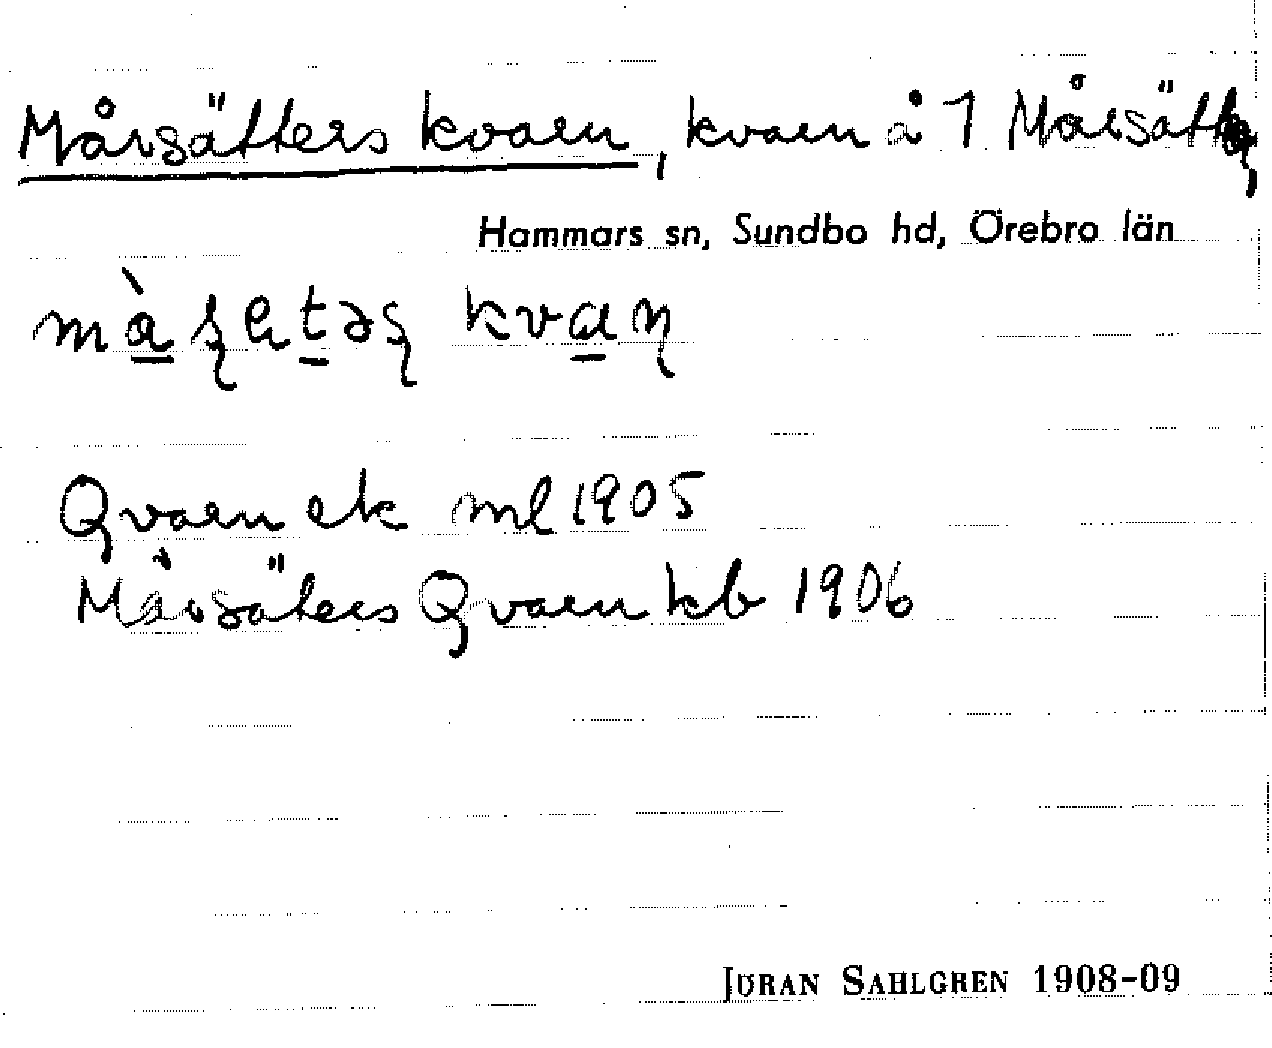 Mårsätters kvarn, kvarn å 1 Mårsätter,
Hammars sn, Sundbo hd, Örebro län
kvaɳ
Qvarn ek ml 1905
Mårsäters Qvarn kb 1906
JÖRAN SAHLGREN 1908-09